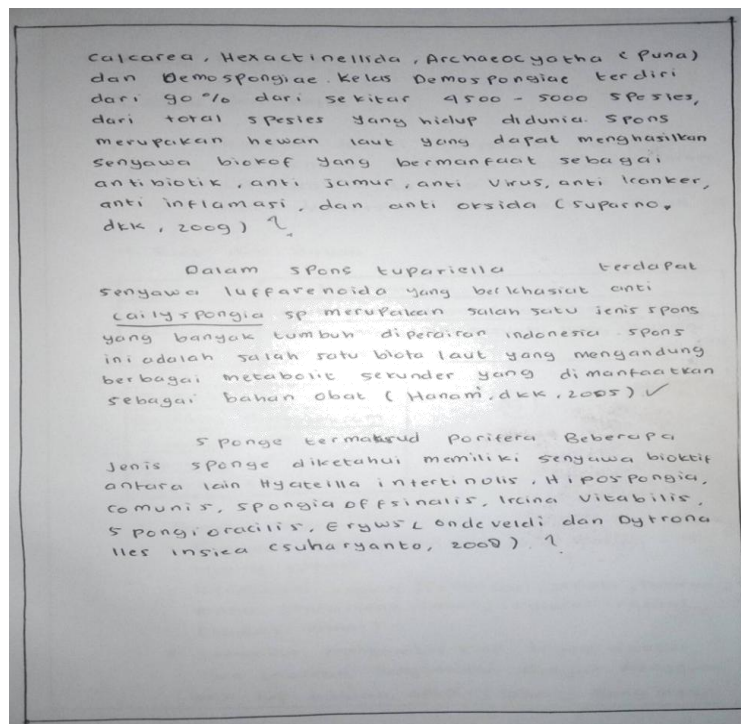 Calcarea, Hexactinellida, Archaeocyatha (Puna)
dan Demospongiae. Kelas Demospongiae terdiri
dari 90 % dari sekitar 4500 - 5000 spesies,
dari total spesies yang hidup didunia. Spons
merupakan hewan laut yang dapat menghasilkan
senyawa biokof yang bermanfaat sebagai
antibiotik, anti jamur, anti virus, anti kanker,
anti inflamasi, dan anti oksida (suparno,
dkk, 2009)
Dalam spons tupariella terdapat
senyawa luffarenoida yang berkhasiat anti
cailyspongia sp merupakan salah satu jenis spons
yang banyak tumbuh diperairan indonesia. spons
ini adalah salah satu biota laut yang mengandung
berbagai metabolit sekunder yang dimanfaatkan
sebagai bahan obat (Hanam, dkk, 2005) ✓
Sponge termaksud Porifera Beberapa
Jenis sponge diketahui memiliki senyawa bioktif
antara lain Hyatella intertinolis, Hipospongia,
comunis, spongia offsinalis, Ircina Vitabilis,
spongi oracilis, ondeveldi dan Dytrona
lles insica (suharyanto, 2008)